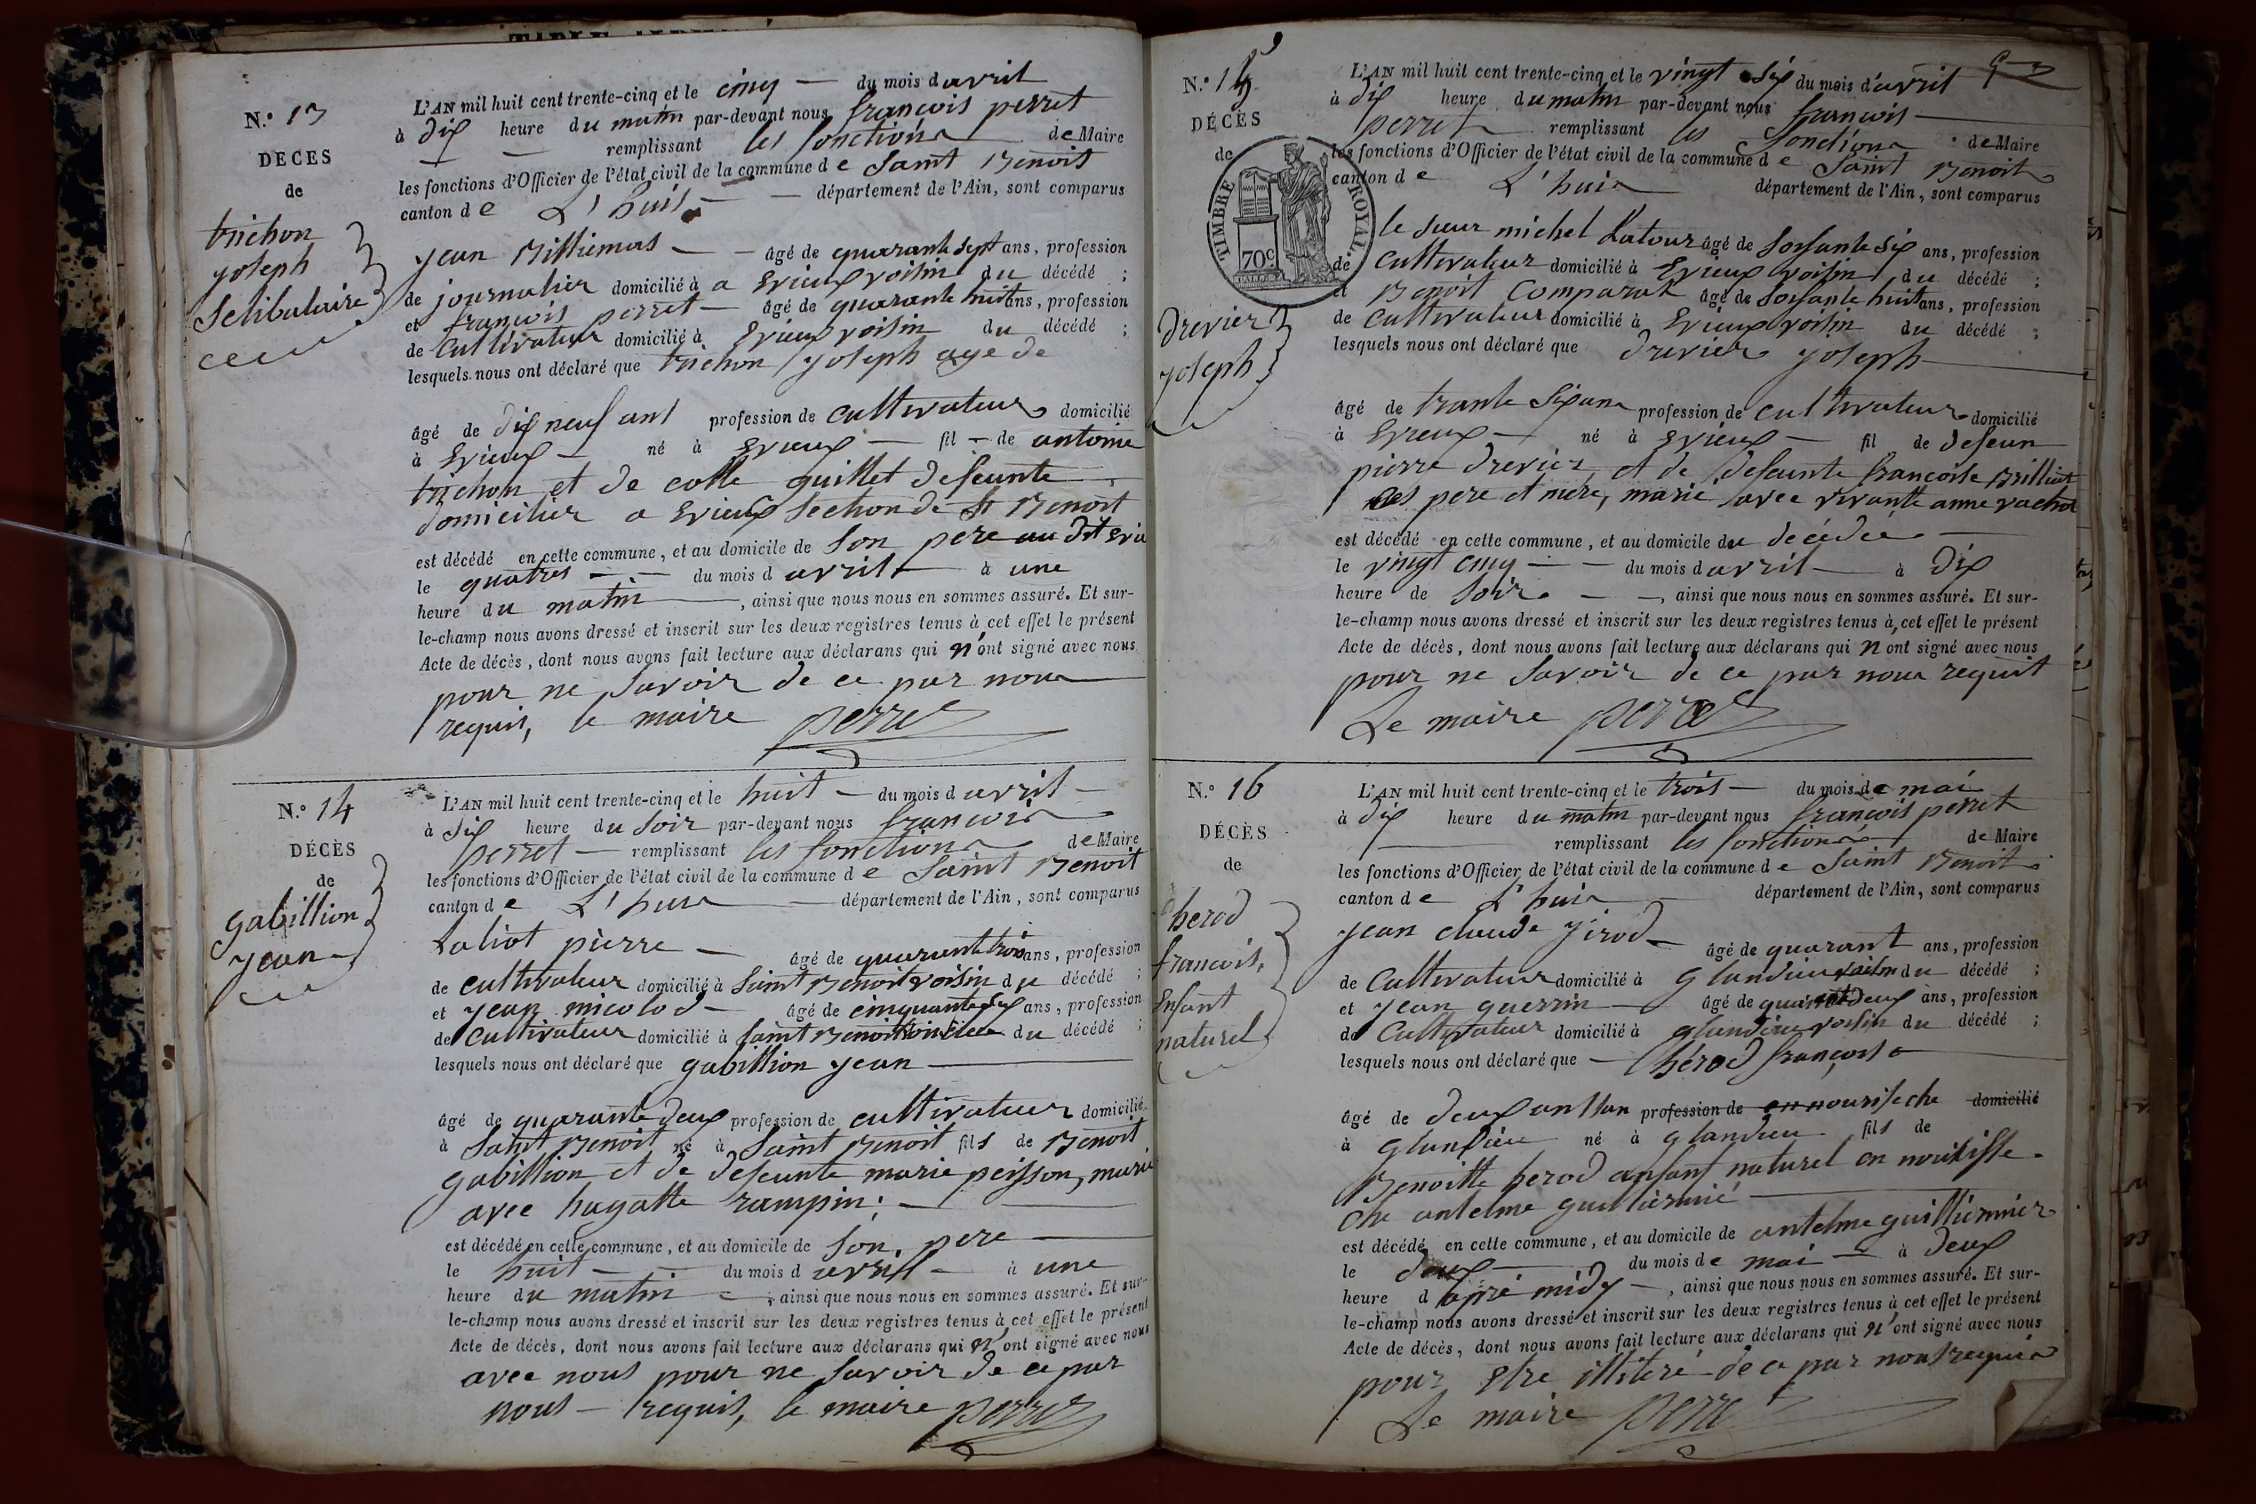 N.° 13
DECES
de
trichon
joseph
Selibataire
L'AN mil huit cent trente-cinq et le cinq du mois d avril
à dix heure du matin par-devant nous francois perret
remplissant les fonctions de Maire
les fonctions d'Officier de l'état civil de la commune d e Saint Benoit
canton d e L'huis département de l'Ain, sont comparus
jean Billiemas âgé de quarante sept ans, profession
de journalier domicilié à a Evieux voisin du décédé ;
et francois perret âgé de quarante huit ans, profession
de Cultivateur domicilié à Evieux voisin du décédé ;
lesquels nous ont déclaré que trichon joseph age de
âgé de dix neuf ans profession de cultivateur domicilié
à Evieux né à Evieux fil de antoine
trichon et de colle quillet defeunte
domicilier a Evieux Section de St Benoit
est décédé en cette commune, et au domicile de Son pere au dit Evieu
le quatres du mois d avril à une
heure du matin, ainsi que nous nous en sommes assuré. Et sur-
le-champ nous avons dressé et inscrit sur les deux registres tenus à cet effet le présent
Acte de décès, dont nous avons fait lecture aux déclarans qui n'ont signé avec nous
pour ne Savoir de ce par nous
requis, le maire perret
N.° 14
DÉCÈS
de
gabillion
jean
L'AN mil huit cent trente-cinq et le huit du mois d avril
à dix heure du Soir par-devant nous francois
perret remplissant les fonctions de Maire
les fonctions d'Officier de l'état civil de la commune d e Saint Benoit
canton d e L'huis département de l'Ain, sont comparus
Laliot pierre âgé de quarante trois ans, profession
de cultivateur domicilié à Saint Benoit voisin du décédé ;
et jean micolod âgé de cinquante dix ans, profession
de Cultivateur domicilié à Saint Benoit du décédé ;
lesquels nous ont déclaré que gabillion jean
âgé de quarante deux profession de cultivateur domicilié
à Saint Benoit né à Saint Benoit fils de Benoit
gabillion et de defeunte marie peisson, marié
avec hagatte rampin.
est décédé en cette commune, et au domicile de Son pere
le huit du mois d avril à une
heure du matin, ainsi que nous nous en sommes assuré. Et sur-
le-champ nous avons dressé et inscrit sur les deux registres tenus à cet effet le présent
Acte de décès, dont nous avons fait lecture aux déclarans qui n'ont signé avec nous
avec nous pour ne Savoir de ce par
nous requis, le maire perret
N.° 15
DÉCÈS
de
TIMBRE ROYAL
70c
drevier
joseph
L'AN mil huit cent trente-cinq et le vingt Six du mois d'avril
à dix heure du matin par-devant nous francois
perret remplissant les fonctions de Maire
les fonctions d'Officier de l'état civil de la commune d e Saint Benoit
canton d e L'huis département de l'Ain, sont comparus
le Sieur michel Latour âgé de Soisante Six ans, profession
de Cultivateur domicilié à Evieux voisin du décédé ;
et Benoit Comparat âgé de Soisante huit ans, profession
de Cultivateur domicilié à Evieux voisin du décédé ;
lesquels nous ont déclaré que drevier joseph
âgé de trante Six ans profession de cultivateur domicilié
à Evieux né à Evieux fil de defeun
pierre drevier et de defeunte francoise Billiat
Ses pere et mere, marié avec vivante anne vachot
est décédé en cette commune, et au domicile du décédé
le vingt cinq du mois d avril à dix
heure de Soir, ainsi que nous nous en sommes assuré. Et sur-
le-champ nous avons dressé et inscrit sur les deux registres tenus à cet effet le présent
Acte de décès, dont nous avons fait lecture aux déclarans qui n ont signé avec nous
pour ne Savoir de ce par nous requit
Le maire perret
N.° 16
DÉCÈS
de
herod
francois,
Enfant
naturel
L'AN mil huit cent trente-cinq et le trois du mois de mai
à dix heure du matin par-devant nous francois perret
remplissant les fonctions de Maire
les fonctions d'Officier de l'état civil de la commune d e Saint Benoit
canton d e L'huis département de l'Ain, sont comparus
jean claude jirod âgé de quarant ans, profession
de Cultivateur domicilié à glandieu voisin du décédé ;
et jean guerrin âgé de quarant deux ans, profession
de Cultivateur domicilié à glandieu voisin du décédé ;
lesquels nous ont déclaré que hérod françois
âgé de deux ans profession de en nourisse che domicilié
à glandieu né à glandieu fils de
Benoitte herod anfant naturel en nourisse
che antelme guilliermié
est décédé en cette commune, et au domicile de antelme guilliermier
le deux du mois de mai à deux
heure d apré midy, ainsi que nous nous en sommes assuré. Et sur-
le-champ nous avons dressé et inscrit sur les deux registres tenus à cet effet le présent
Acte de décès, dont nous avons fait lecture aux déclarans qui n'ont signé avec nous
pour Etre illiteré de ce par nous requis
Le maire perret